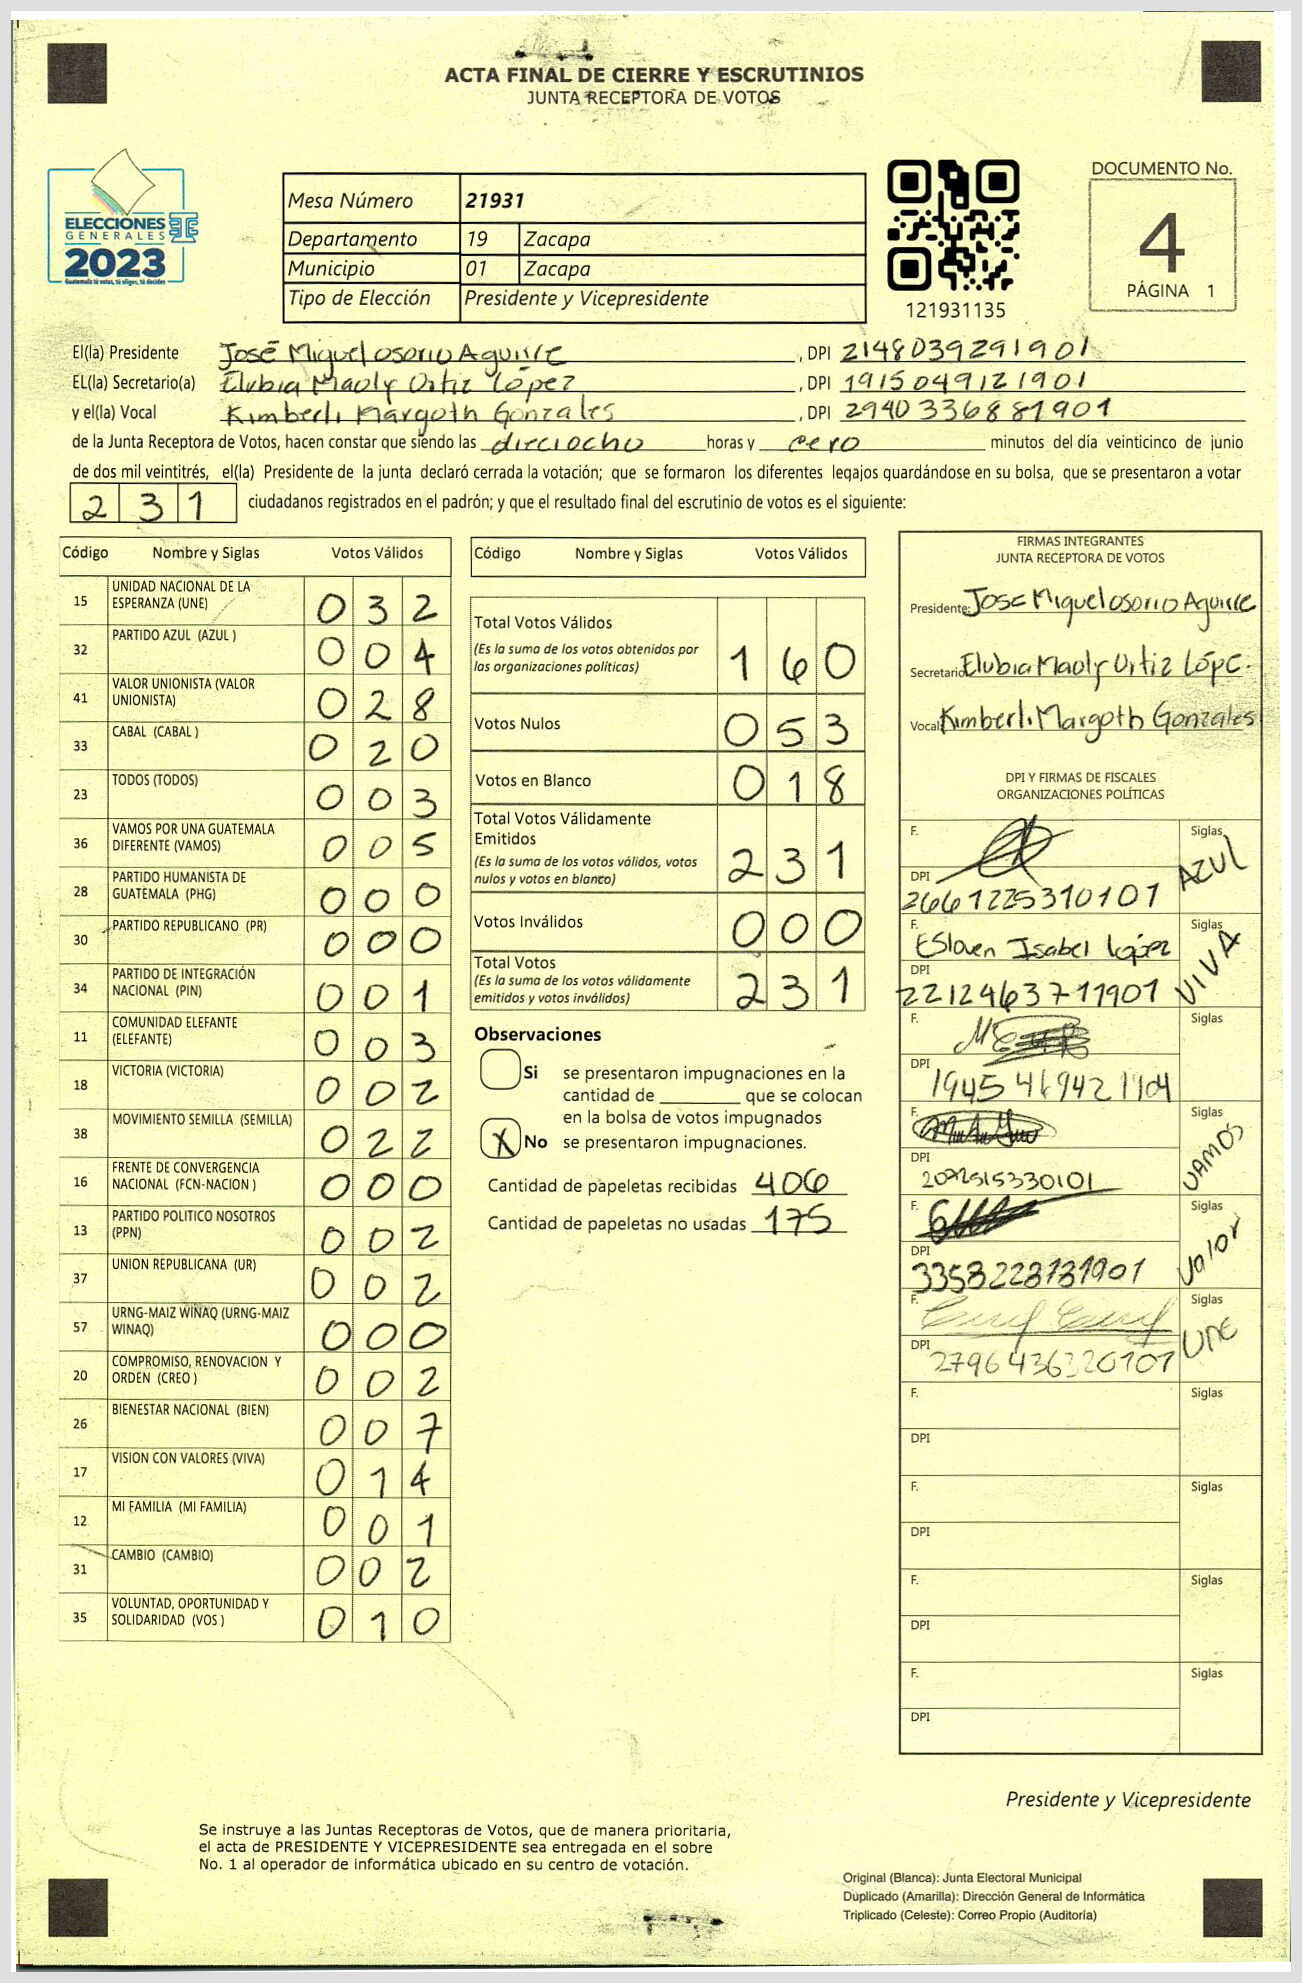 ACTA FINAL DE CIERRE Y ESCRUTINIOS
JUNTA RECEPTORA DE VOTOS
ELECCIONES
GENERALES
2023
Guatemala tú votas, tú eliges, tú decides
Mesa Número 21931
Departamento 19 Zacapa
Municipio 01 Zacapa
Tipo de Elección Presidente y Vicepresidente
121931135
DOCUMENTO No.
4
PÁGINA 1
El(la) Presidente José Miguel osorio Aguirre, DPI 2148039291901
EL(la) Secretario(a) Elubia Maoly Ortiz López, DPI 1915049121901
y el(la) Vocal Kimberli Margoth Gonzales, DPI 2940336881901
de la Junta Receptora de Votos, hacen constar que siendo las dieciocho horas y cero minutos del día veinticinco de junio
de dos mil veintitrés, el(la) Presidente de la junta declaró cerrada la votación; que se formaron los diferentes legajos guardándose en su bolsa, que se presentaron a votar
231 ciudadanos registrados en el padrón; y que el resultado final del escrutinio de votos es el siguiente:
Código Nombre y Siglas Votos Válidos
15 UNIDAD NACIONAL DE LA ESPERANZA (UNE) 032
32 PARTIDO AZUL (AZUL ) 004
41 VALOR UNIONISTA (VALOR UNIONISTA) 028
33 CABAL (CABAL ) 020
23 TODOS (TODOS) 003
36 VAMOS POR UNA GUATEMALA DIFERENTE (VAMOS) 005
28 PARTIDO HUMANISTA DE GUATEMALA (PHG) 000
30 PARTIDO REPUBLICANO (PR) 000
34 PARTIDO DE INTEGRACIÓN NACIONAL (PIN) 001
11 COMUNIDAD ELEFANTE (ELEFANTE) 003
18 VICTORIA (VICTORIA) 002
38 MOVIMIENTO SEMILLA (SEMILLA) 022
16 FRENTE DE CONVERGENCIA NACIONAL (FCN-NACION ) 000
13 PARTIDO POLITICO NOSOTROS (PPN) 002
37 UNION REPUBLICANA (UR) 002
57 URNG-MAIZ WINAQ (URNG-MAIZ WINAQ) 000
20 COMPROMISO, RENOVACION Y ORDEN (CREO ) 002
26 BIENESTAR NACIONAL (BIEN) 007
17 VISION CON VALORES (VIVA) 014
12 MI FAMILIA (MI FAMILIA) 001
31 CAMBIO (CAMBIO) 002
35 VOLUNTAD, OPORTUNIDAD Y SOLIDARIDAD (VOS ) 010
Código Nombre y Siglas Votos Válidos
Total Votos Válidos 160
(Es la suma de los votos obtenidos por
las organizaciones políticas)
Votos Nulos 053
Votos en Blanco 018
Total Votos Válidamente
Emitidos 231
(Es la suma de los votos válidos, votos
nulos y votos en blanco)
Votos Inválidos 000
Total Votos 231
(Es la suma de los votos válidamente
emitidos y votos inválidos)
Observaciones
Si se presentaron impugnaciones en la
cantidad de ________ que se colocan
en la bolsa de votos impugnados
X No se presentaron impugnaciones.
Cantidad de papeletas recibidas 406
Cantidad de papeletas no usadas 175
FIRMAS INTEGRANTES
JUNTA RECEPTORA DE VOTOS
Presidente: José Miguel osorio Aguirre
Secretario Elubia Maoly Ortiz Lópe.
Vocal Kimberli Margoth Gonzales
DPI Y FIRMAS DE FISCALES
ORGANIZACIONES POLÍTICAS
F. Siglas AZUL
DPI 2661225310101
F. Isabel López Siglas VIVA
DPI 2212463711901
F. Siglas
DPI
F. Siglas VAMOS
DPI
F. Siglas Valor
DPI 3358228781901
F. Siglas UNE
DPI
F. Siglas
DPI
F. Siglas
DPI
F. Siglas
DPI
F. Siglas
DPI
Presidente y Vicepresidente
Se instruye a las Juntas Receptoras de Votos, que de manera prioritaria,
el acta de PRESIDENTE Y VICEPRESIDENTE sea entregada en el sobre
No. 1 al operador de informática ubicado en su centro de votación.
Original (Blanca): Junta Electoral Municipal
Duplicado (Amarilla): Dirección General de Informática
Triplicado (Celeste): Correo Propio (Auditoría)